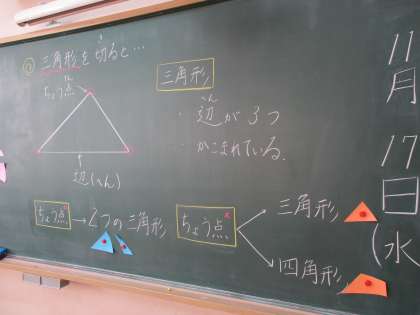 三角形を切ると…
ちょう点
辺(へん)
三角形
・辺が3つ
・かこまれている。
ちょう点→2つの三角形
ちょう点
三角形
四角形
11月17日(水